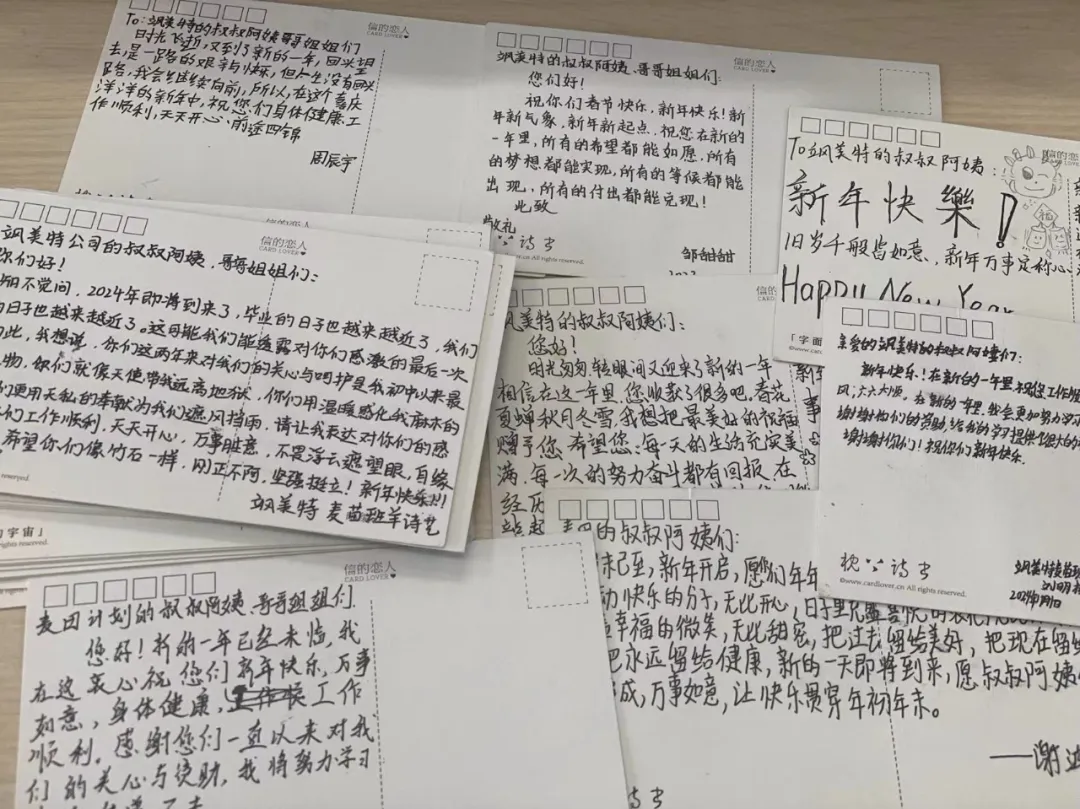 To:飒美特的叔叔阿姨哥哥姐姐们
时光飞逝,又到了新的一年,回头望
去,是一路的艰辛与快乐,但人生没有回头
路,我会继续向前,所以,在这个喜庆
洋洋的新年中,祝您们身体健康,工
作顺利,天天开心,前途四锦
周辰宇
信的恋人
CARD LOVER
飒美特的叔叔阿姨、哥哥姐姐们:
您们好!
祝你们春节快乐,新年快乐!新
年新气象,新年新起点,祝您在新的
一年里,所有的希望都能如愿,所有
的梦想都能实现,所有的等候都能
出现,所有的付出都能兑现!
此致
敬礼
邹甜甜
信的恋人
CARD LOVER
To飒美特的叔叔阿姨:
新年快樂!
旧岁千般皆如意,新年万事定称心
Happy New Year
信的恋人
CARD LOVER
飒美特公司的叔叔阿姨,哥哥姐姐们:
你们好!
不知不觉间,2024年即将到来了,毕业的日子也越来越近了,我们
的日子也越来越近了。这可能我们能透露对你们感激的最后一次
此,我想说,你们这两年来对我们的关心与呵护是我初中以来最
物,你们就像天使带我远离地狱,你们用温暖感化我麻木的
们更用无私的奉献为我们遮风挡雨,请让我表达对你们的感
们工作顺利,天天开心,万事胜意,不畏浮云遮望眼,自缘
希望你们像竹石一样,刚正不阿,坚强挺立!新年快乐!!!
飒美特 麦苗班羊诗艺
信的恋人
CARD LOVER
飒美特的叔叔阿姨们:
您好!
时光匆匆,转眼间又迎来了新的一年
相信在这一年里,您收获了很多吧。春花
夏蝉秋月冬雪,我想把最美好的祝福
赠予您,希望您:每一天的生活充实美
满,每一次的努力奋斗都有回报,在
经历
站起
亲爱的飒美特的叔叔阿姨们:
新年快乐!在新的一年里祝您工作顺
风,六六大顺,在新的一年里,我会更加努力学习
谢谢你们的资助,给我的学习提供了很大的
谢谢你们!祝你们新年快乐.
枕 诗书
©www.cardlover.cn All rights reserved.
麦田计划的叔叔阿姨、哥哥姐姐们.
您好!新的一年已经来临,我
在这衷心祝您们新年快乐,万事
如意,身体健康,工作
顺利。感谢您们一直以来对我
们的关心与资助,我将努力学习
信的恋人
CARD LOVER
麦田的叔叔阿姨们:
末已至,新年开启,愿你们年年
动快乐的分子,无比开心,日子里
幸福的微笑,无比甜蜜,把过去留给美好,把现在留给
把永远留给健康,新的一天即将到来,愿叔叔阿姨
成,万事如意,让快乐贯穿年初年末。
——谢
诗书